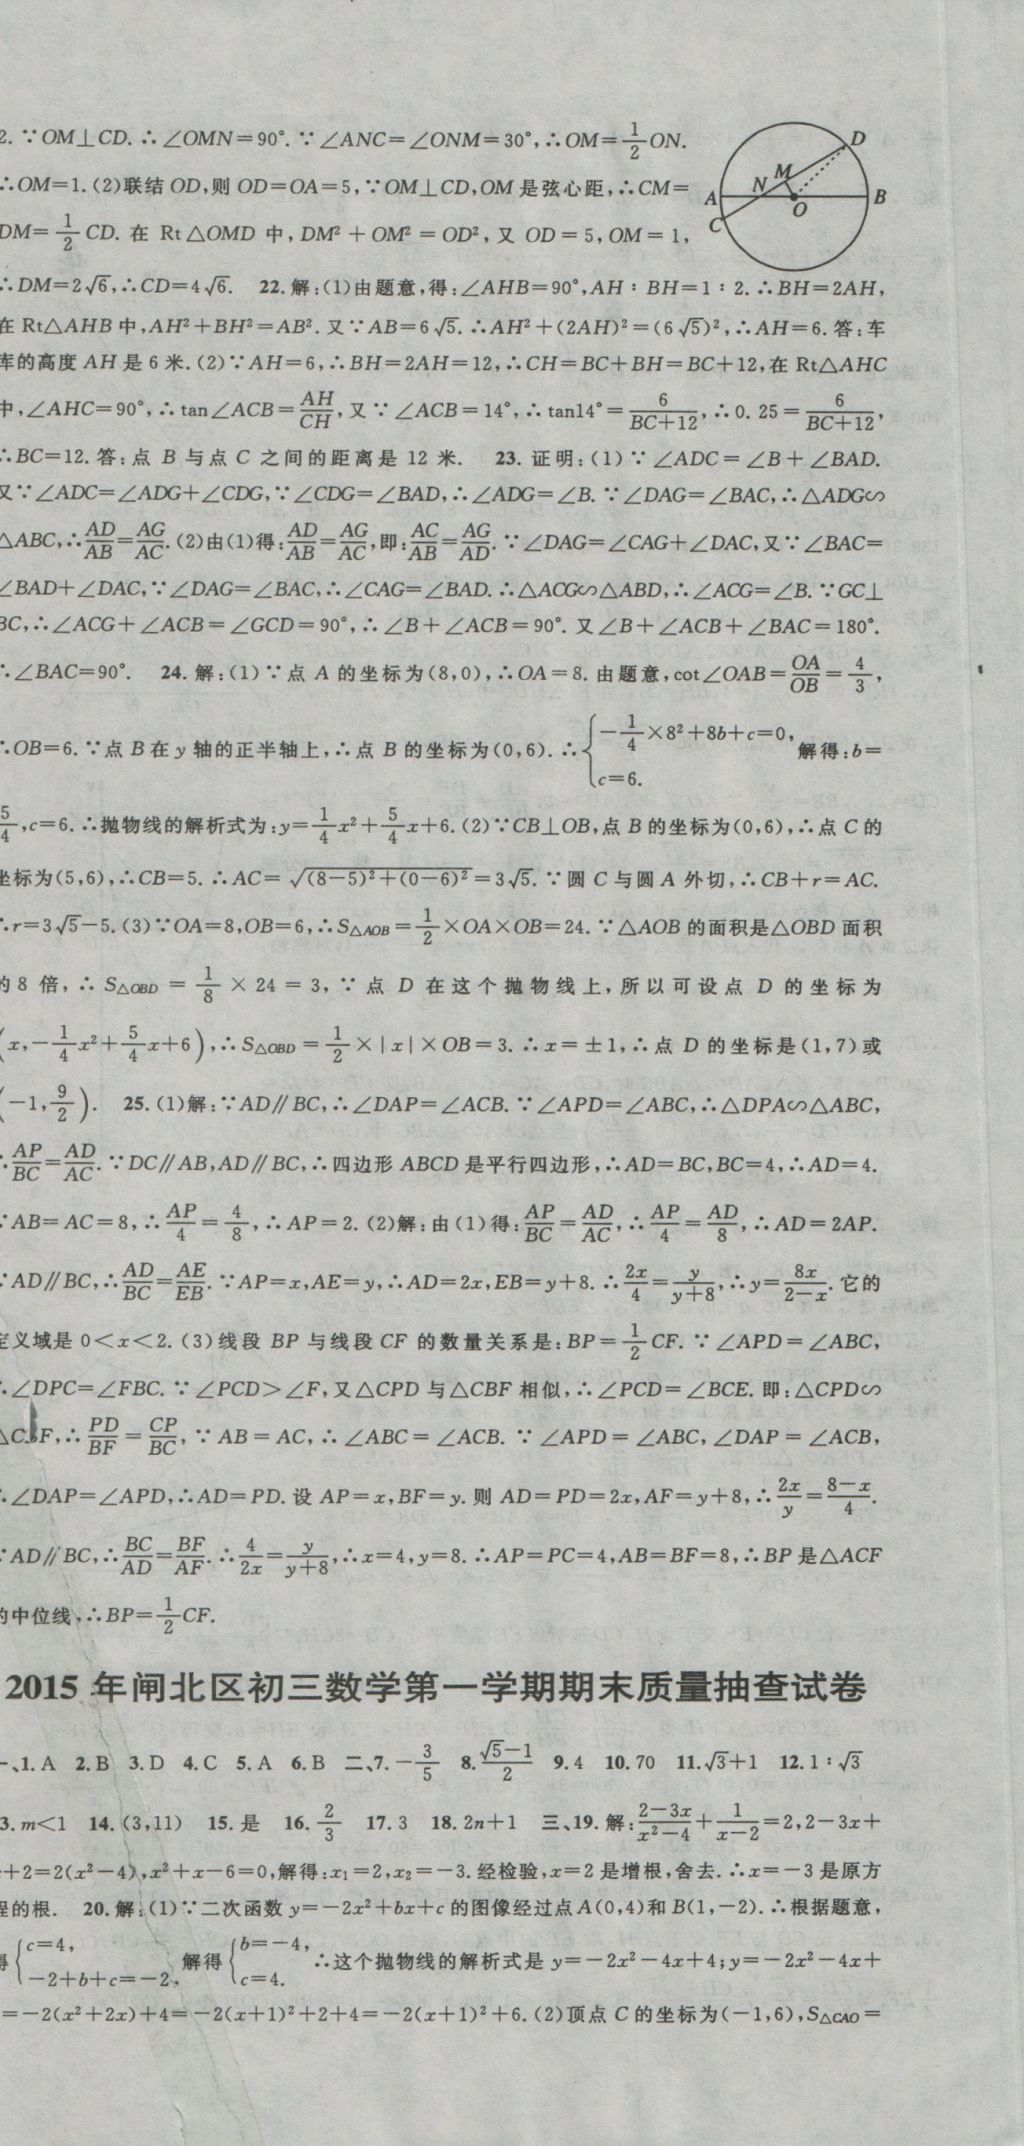 2.∵OM⊥CD.∴∠OMN=90°.∵∠ANC=∠ONM=30°,∴OM=1/2ON.
∴OM=1.(2)联结OD,则OD=OA=5,∵OM⊥CD,OM是弦心距,∴CM=
DM=1/2CD.在Rt△OMD中,DM²+OM²=OD²,又OD=5,OM=1,
A B C D M N O
∴DM=2√6,∴CD=4√6. 22.解:(1)由题意,得:∠AHB=90°,AH∶BH=1∶2.∴BH=2AH,
在Rt△AHB中,AH²+BH²=AB².又∵AB=6√5.∴AH²+(2AH)²=(6√5)²,∴AH=6.答:车
库的高度AH是6米.(2)∵AH=6,∴BH=2AH=12,∴CH=BC+BH=BC+12,在Rt△AHC
中,∠AHC=90°,∴tan∠ACB=AH/CH,又∵∠ACB=14°,∴tan14°=6/(BC+12),∴0.25=6/(BC+12),
∴BC=12.答:点B与点C之间的距离是12米. 23.证明:(1)∵∠ADC=∠B+∠BAD.
又∵∠ADC=∠ADG+∠CDG,∵∠CDG=∠BAD,∴∠ADG=∠B.∵∠DAG=∠BAC,∴△ADG∽
△ABC,∴AD/AB=AG/AC.(2)由(1)得:AD/AB=AG/AC,即:AC/AB=AG/AD.∵∠DAG=∠CAG+∠DAC,又∵∠BAC=
∠BAD+∠DAC,∵∠DAG=∠BAC,∴∠CAG=∠BAD.∴△ACG∽△ABD,∴∠ACG=∠B.∵GC⊥
BC,∴∠ACG+∠ACB=∠GCD=90°,∴∠B+∠ACB=90°.又∠B+∠ACB+∠BAC=180°.
∴∠BAC=90°. 24.解:(1)∵点A的坐标为(8,0),∴OA=8.由题意,cot∠OAB=OA/OB=4/3,
∴OB=6.∵点B在y轴的正半轴上,∴点B的坐标为(0,6).∴{-1/4×8²+8b+c=0, c=6. 解得:b=
5/4,c=6.∴抛物线的解析式为:y=-1/4x²+5/4x+6.(2)∵CB⊥OB,点B的坐标为(0,6),∴点C的
坐标为(5,6),∴CB=5.∴AC=√((8-5)²+(0-6)²)=3√5.∵圆C与圆A外切,∴CB+r=AC.
∴r=3√5-5.(3)∵OA=8,OB=6,∴S△AOB=1/2×OA×OB=24.∵△AOB的面积是△OBD面积
的8倍,∴S△OBD=1/8×24=3,∵点D在这个抛物线上,所以可设点D的坐标为
(x,-1/4x²+5/4x+6),∴S△OBD=1/2×|x|×OB=3.∴x=±1,∴点D的坐标是(1,7)或
(-1,9/2). 25.(1)解:∵AD∥BC,∴∠DAP=∠ACB.∵∠APD=∠ABC,∴△DPA∽△ABC,
∴AP/BC=AD/AC.∵DC∥AB,AD∥BC,∴四边形ABCD是平行四边形,∴AD=BC,BC=4,∴AD=4.
∵AB=AC=8,∴AP/4=4/8,∴AP=2.(2)解:由(1)得:AP/BC=AD/AC,∴AP/4=AD/8,∴AD=2AP.
∵AD∥BC,∴AD/BC=AE/EB.∵AP=x,AE=y,∴AD=2x,EB=y+8.∴2x/4=y/(y+8),∴y=8x/(2-x).它的
定义域是0<x<2.(3)线段BP与线段CF的数量关系是:BP=1/2CF.∵∠APD=∠ABC,
∴∠DPC=∠FBC.∵∠PCD>∠F,又△CPD与△CBF相似,∴∠PCD=∠BCE.即:△CPD∽
△CBF,∴PD/BF=CP/BC,∵AB=AC,∴∠ABC=∠ACB.∵∠APD=∠ABC,∠DAP=∠ACB,
∴∠DAP=∠APD,∴AD=PD.设AP=x,BF=y.则AD=PD=2x,AF=y+8,∴2x/y=(8-x)/4.
∵AD∥BC,∴BC/AD=BF/AF.∴4/2x=y/(y+8),∴x=4,y=8.∴AP=PC=4,AB=BF=8,∴BP是△ACF
的中位线,∴BP=1/2CF.
2015年闸北区初三数学第一学期期末质量抽查试卷
一、1.A 2.B 3.D 4.C 5.A 6.B 二、7.-3/5 8.(√5-1)/2 9.4 10.70 11.√3+1 12.1∶√3
3.m<1 14.(3,11) 15.是 16.2/3 17.3 18.2n+1 三、19.解:(2-3x)/(x²-4)+1/(x-2)=2,2-3x+
+2=2(x²-4),x²+x-6=0,解得:x₁=2,x₂=-3.经检验,x=2是增根,舍去.∴x=-3是原方
程的根. 20.解:(1)∵二次函数y=-2x²+bx+c的图像经过点A(0,4)和B(1,-2).∴根据题意,
得{c=4, -2+b+c=-2, 解得{b=-4, c=4. ∴这个抛物线的解析式是y=-2x²-4x+4;y=-2x²-4x+
=-2(x²+2x)+4=-2(x+1)²+2+4=-2(x+1)²+6.(2)顶点C的坐标为(-1,6),S△CAO=